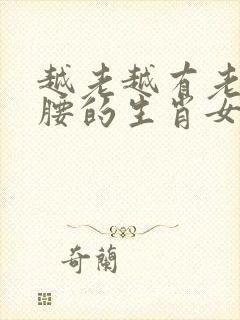 越老越有老
腰的生肖女
奇蘭